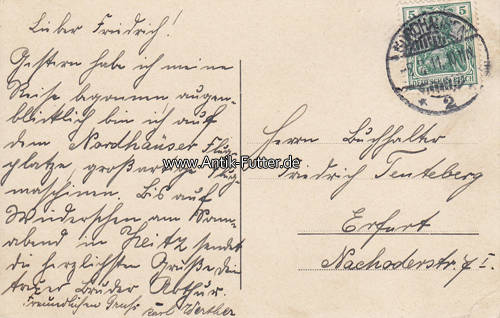 Lieber Friedrich!
Gestern habe ich meine
Reise begonnen augen-
blicklich bin ich auf
dem Nordhäuser Flug-
platze, großartige Flug-
maschinen. Bis auf
Wiedersehen am Sonn-
abend in Zeitz sendet
die herzlichsten Grüße Dein
Bruder Arthur.
Freundlichen Gruß
Karl Werther
5 5
NORDHAUSEN
11
* 2
DEUTSCHES REICH
Herrn Buchhalter
Friedrich Teuteberg
Erfurt
www.Antik-Futter.de